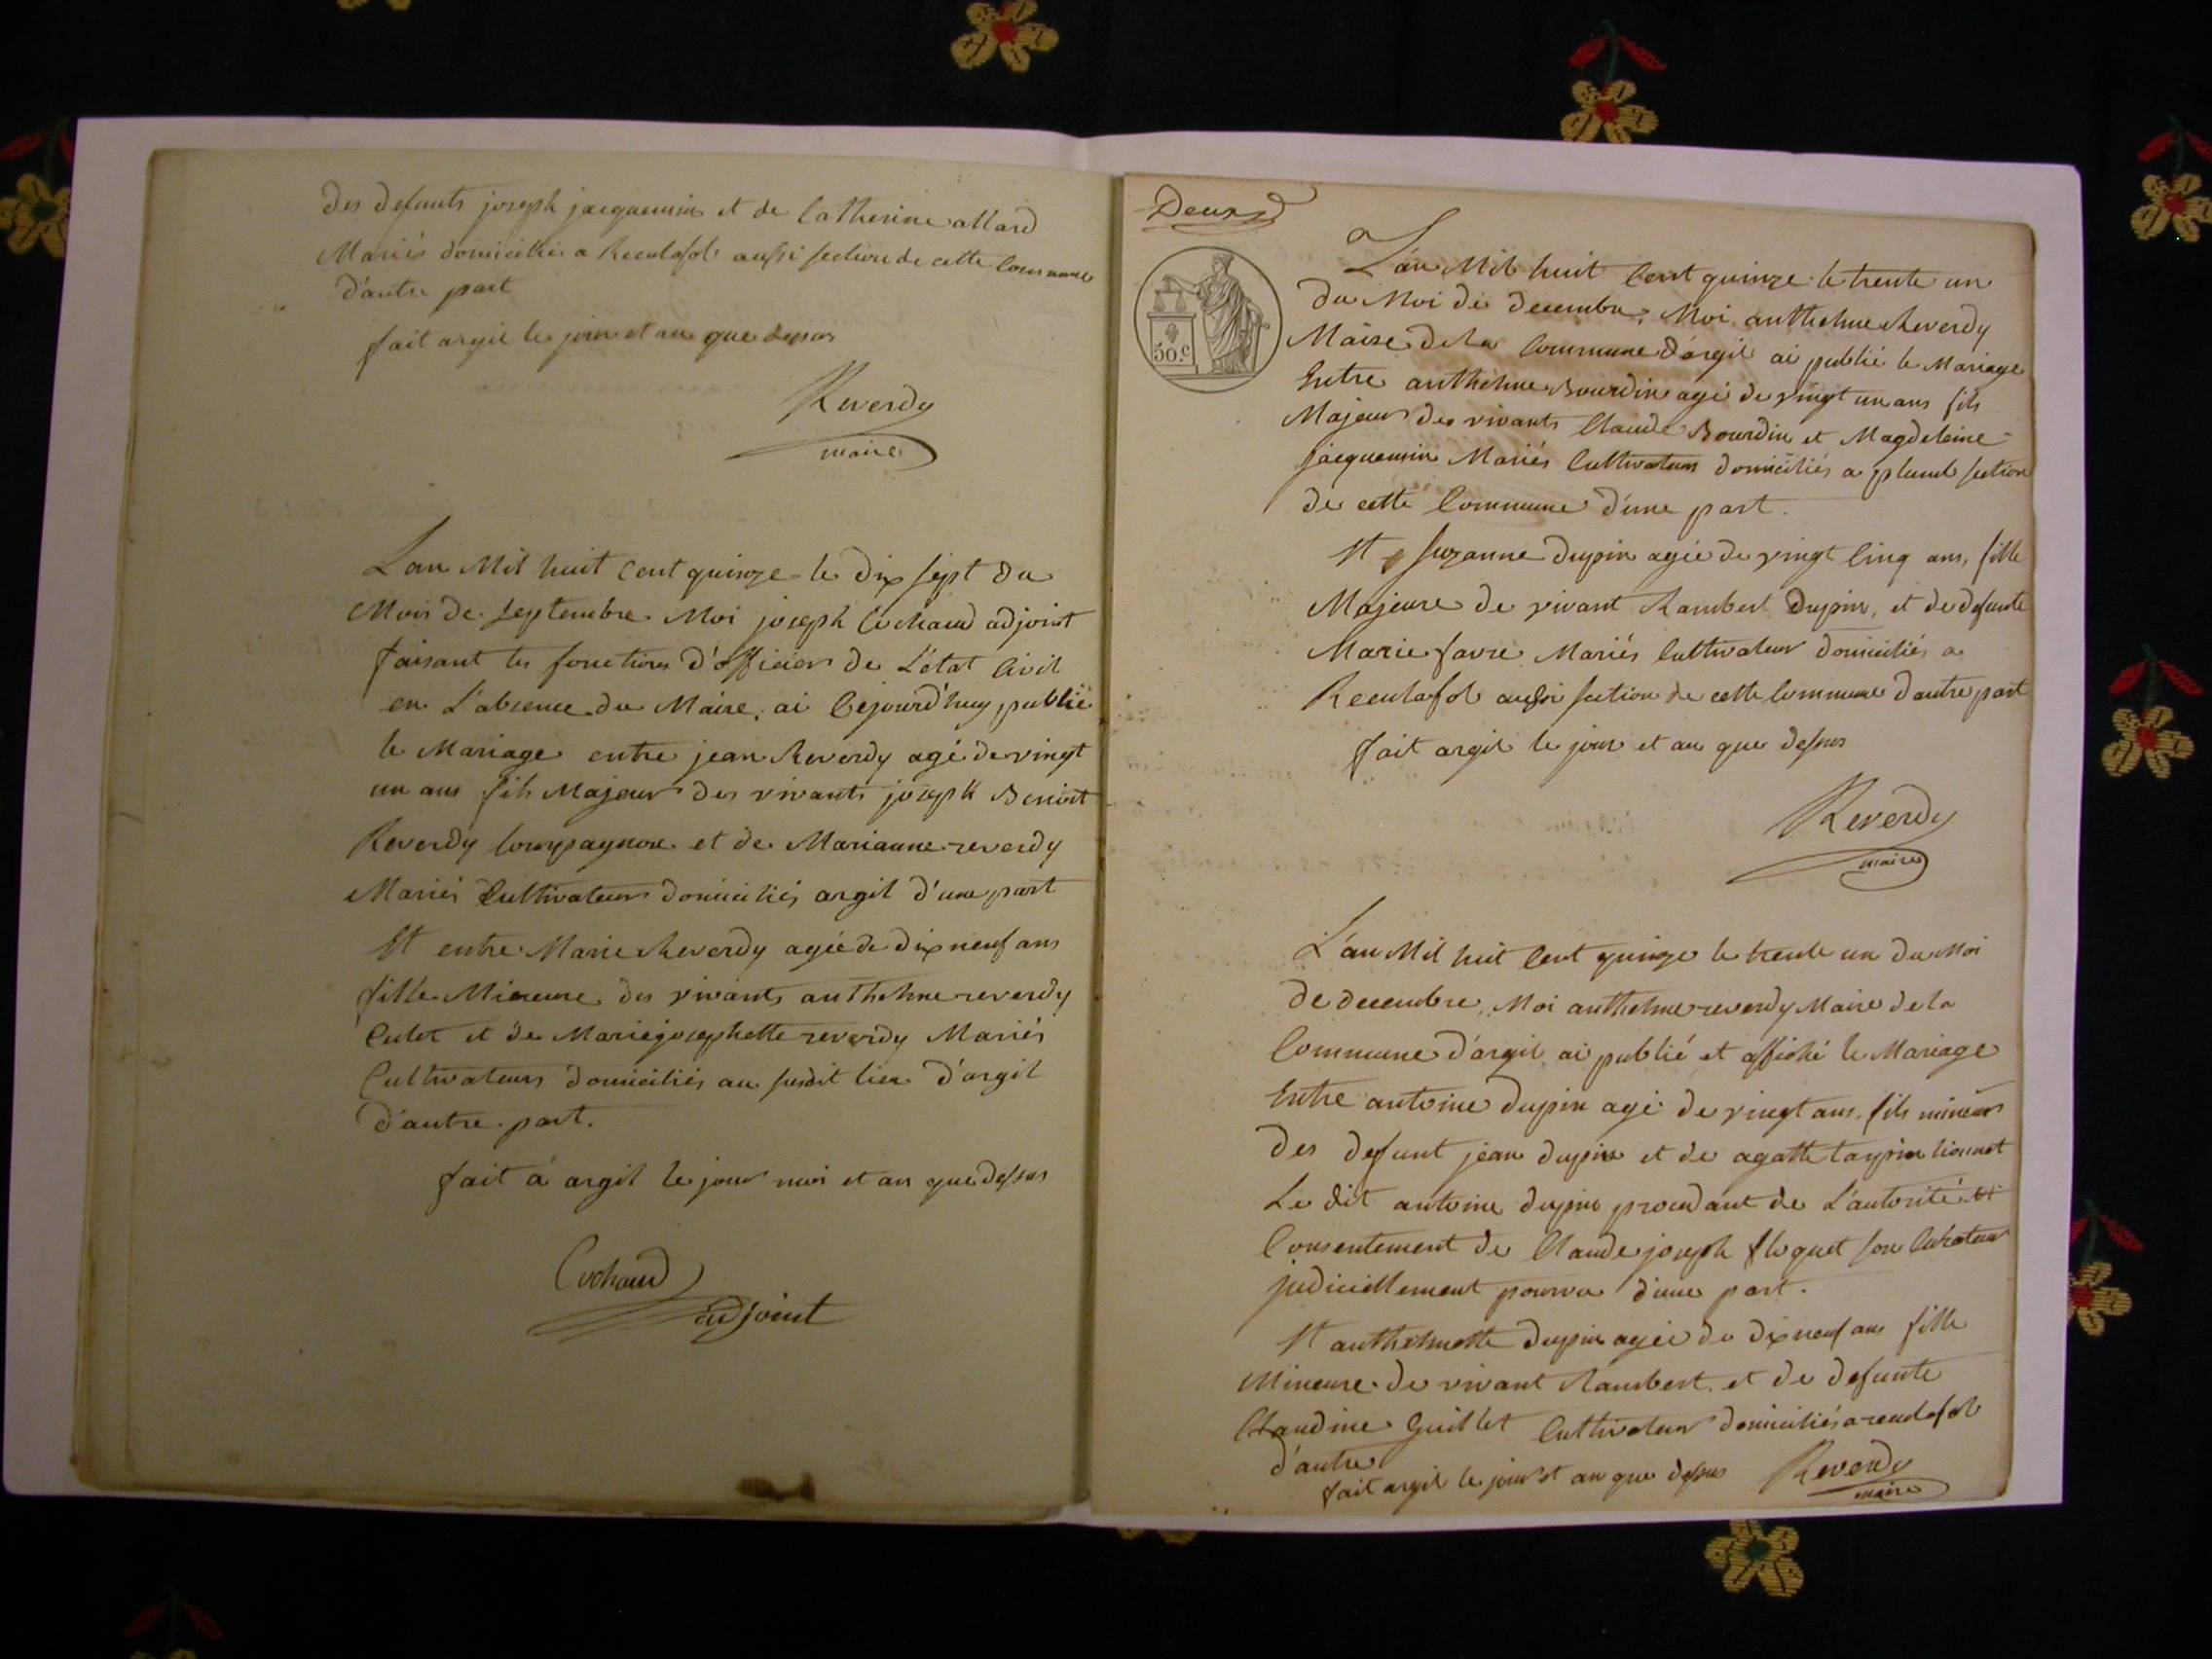 des defunts joseph jacquemin et de Catherine allard
Mariés domicilies a Reculafol aussi section de cette Commune
d'autre part
fait argil le jour et an que dessus
Reverdy
maire
Lan Mil huit Cent quinze le dix sept du
Mois de Septembre Moi joseph Cochaud adjoint
faisant les fonctions d'officier de L'état Civil
en L'absence du Maire, ai Cejourd'huy publié
le Mariage entre jean Reverdy agé de vingt
un ans fils Majeur des vivants joseph Benoit
Reverdy Compagnon et de Marianne reverdy
Mariés Cultivateurs domiciliés argil d'une part
Et entre Marie Reverdy agée de dix neuf ans
fille Mineure des vivants anthelme reverdy
Culet et de Mariejosephette reverdy Mariés
Cultivateurs domiciliés au susdit lieu d'argil
d'autre part.
fait à argil le jour moi et an que dessus
Cochaud
adjoint
Deux
50.c
L'an Mil huit Cent quinze le trente un
du Moi de decembre, Moi anthelme Reverdy
Maire de la Commune d'argil ai publié le Mariage
Entre anthelme Bourdin agé de vingt un ans fils
Majeur des vivants Claude Bourdin et Magdeleine
jacquemin Mariés Cultivateurs domiciliés a section
de cette Commune d'une part.
Et Suzanne Dupin agée de vingt Cinq ans, fille
Majeure de vivant Rambert Dupin, et de defunte
Marie favre Mariés Cultivateur domiciliés a
Reculafol aussi section de cette Commune d'autre part
fait argil le jour et an que dessus
Reverdy
maire
L'an Mil huit Cent quinze le trente un du Moi
de decembre, Moi anthelme reverdy Maire de la
Commune d'argil ai publié et affiché le Mariage
Entre antoine Dupin agé de vingt ans, fils mineur
Des defunt jean dupin et de agatte
Le dit antoine dupin procedant de L'autorité et
Consentement de Claude joseph floquet son Curateur
judiciellement pourvu d'une part.
Et anthelmette Dupin agée de dix neuf ans fille
Mineure de vivant Rambert et de defunte
Claudine Guillet Cultivateur domiciliés a reculafol
d'autre
fait argil le jour et an que dessus Reverdy
maire